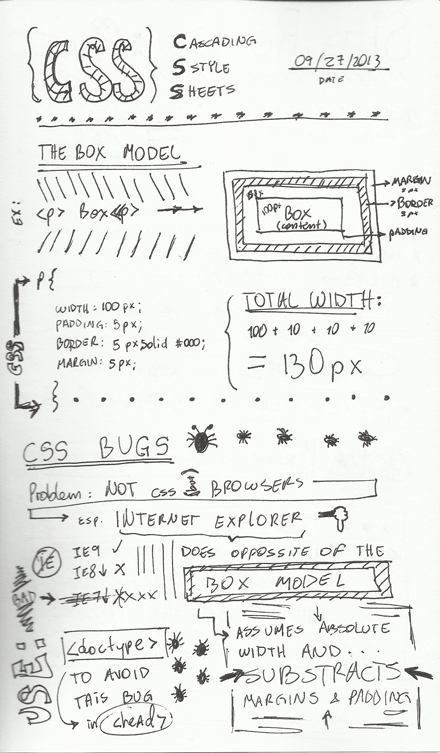 {CSS} CASCADING
STYLE
SHEETS
09/27/2013
DATE
THE BOX MODEL
EX:
<p> Box <p>
5px
100px
BOX
(content)
MARGIN
5px
BORDER
5px
PADDING
CSS
P {
WIDTH: 100px;
PADDING: 5px;
BORDER: 5px solid #000;
MARGIN: 5px;
}
TOTAL WIDTH:
100 + 10 + 10 + 10
= 130px
CSS BUGS
Problem: NOT CSS (but) BROWSERS
ESP. INTERNET EXPLORER
IE
IE9 ✓
IE8↓ X
BAD
IE7↓ XXXX
DOES OPPOSSITE OF THE
BOX MODEL
ASSUMES ABSOLUTE
WIDTH AND...
SUBSTRACTS
MARGINS & PADDING
USE:
<doctype>
TO AVOID
THIS BUG
in <head>